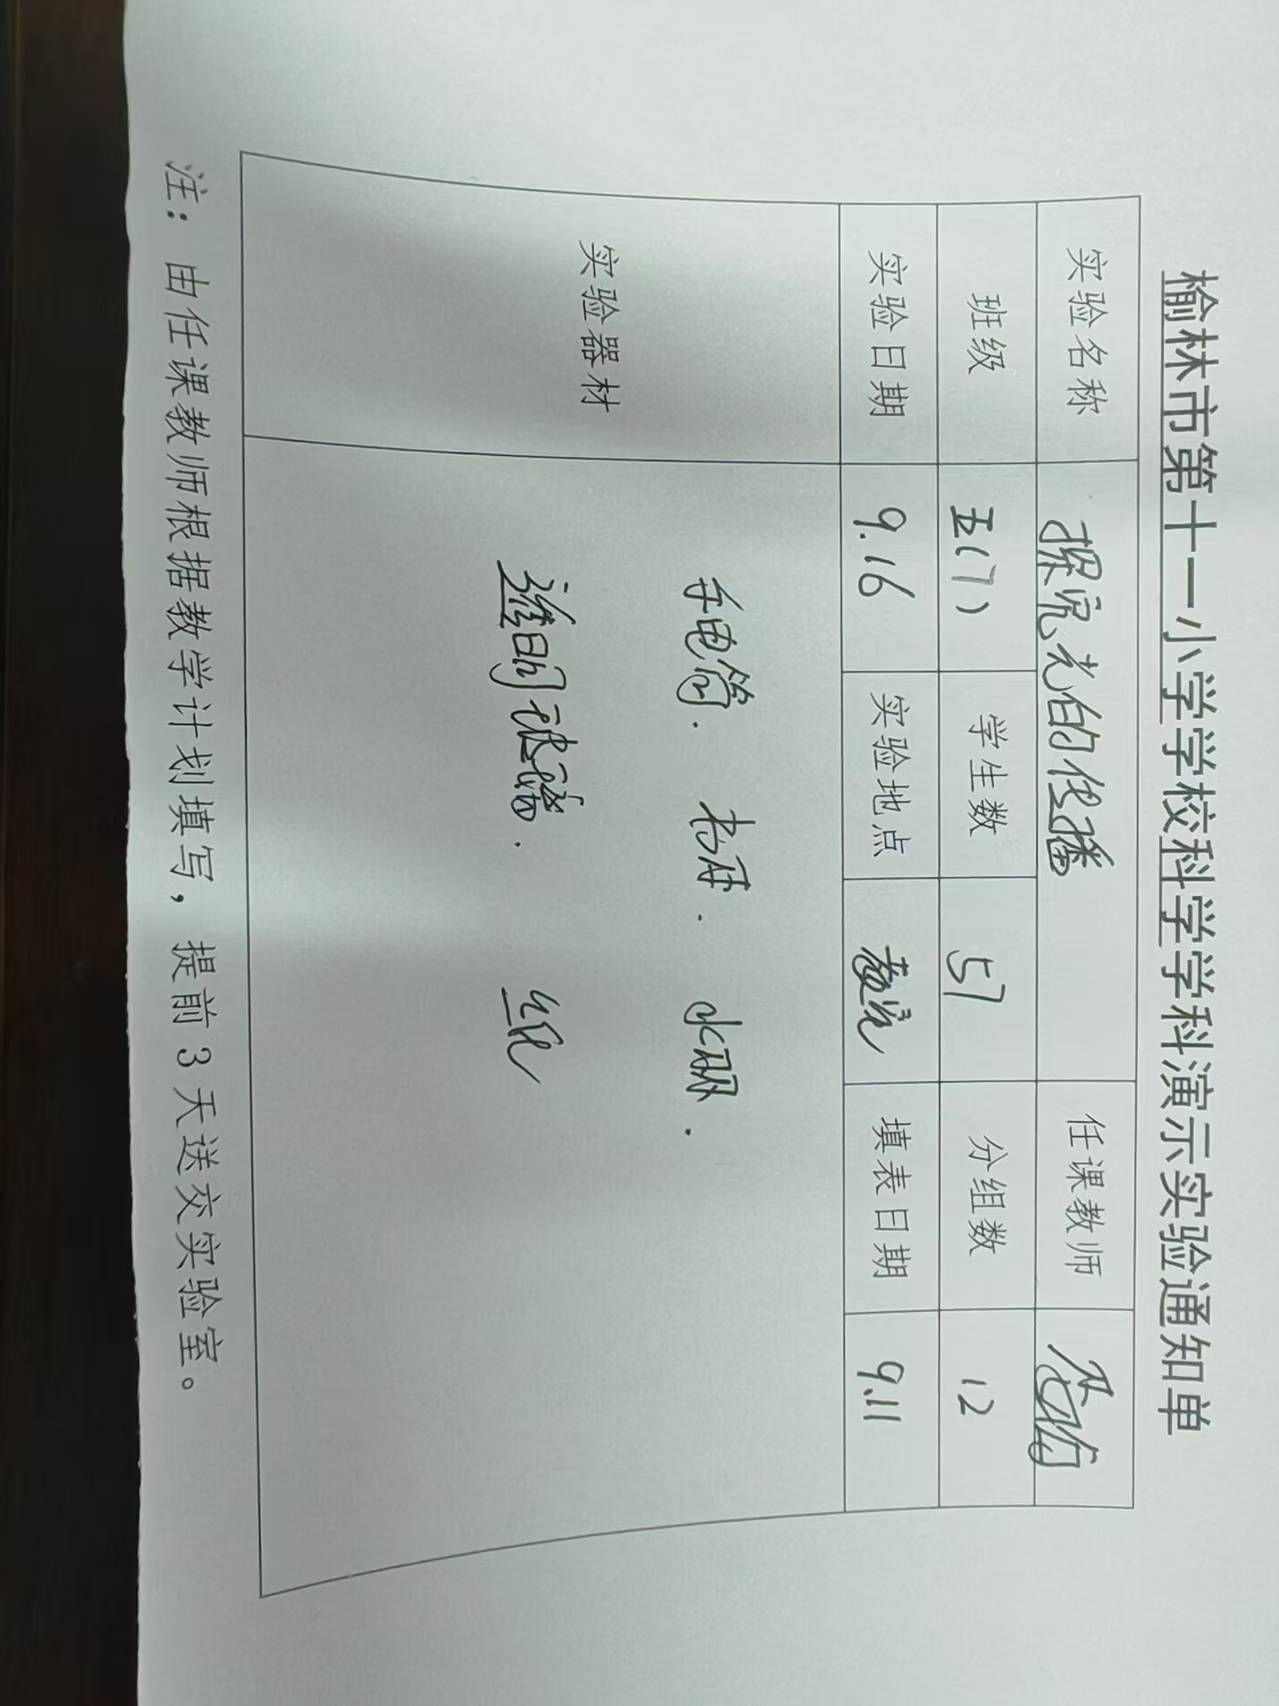 榆林市第十一小学学校科学学科演示实验通知单
实验名称 探究光的传播 任课教师
班级 五(7) 学生数 57 分组数 12
实验日期 9.16 实验地点 教室 填表日期 9.11
实验器材
手电筒. 书本. 水
透明玻璃. 纸
注：由任课教师根据教学计划填写，提前3天送交实验室。